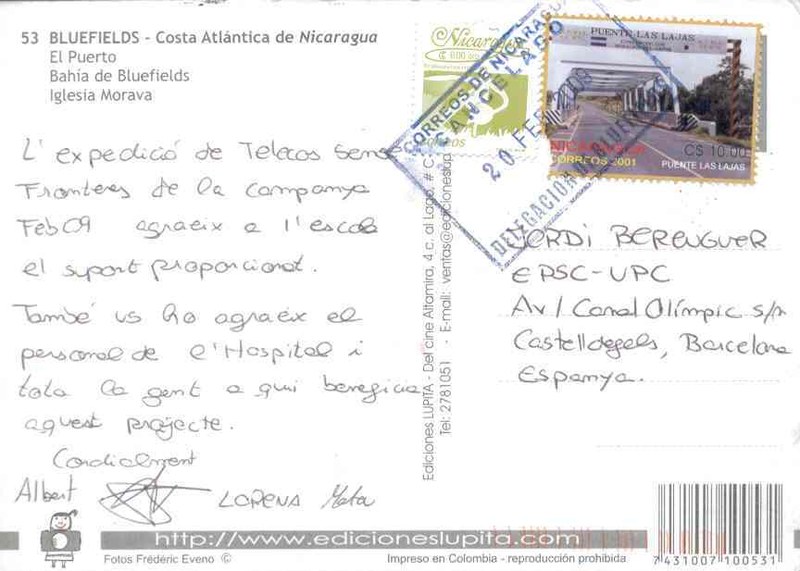 53 BLUEFIELDS - Costa Atlántica de Nicaragua
El Puerto
Bahía de Bluefields
Iglesia Morava
L'expedició de Telecos Sense
Fronteres de la campanya
Feb 09 agraeix a l'escola
el suport proporcionat.
També us ho agraeix el
personal de l'Hospital i
tota la gent a qui beneficia
aquest projecte.
Cordialment
Albert
LORENA
Nicaragua
Correos
PUENTE LAS LAJAS
NICARAGUA C$ 10.00
CORREOS 2001 PUENTE LAS LAJAS
CORREOS DE NICARAGUA
CANCELADO
20 FEB 2009
DELEGACION
Ediciones LUPITA - Del cine Altamira, 4 c. al Lago, # C-
Tel: 2781051 - E-mail: ventas@edicioneslupita
JORDI BERENGUER
EPSC-UPC
Av/ Canal Olímpic s/n
Castelldefels, Barcelona
Espanya.
http://www.edicioneslupita.com
Fotos Frédéric Eveno ©
Impreso en Colombia - reproducción prohibida
7431007100531